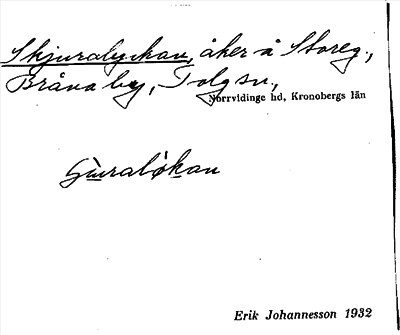 Skjuralyckan, åker å Storeg.,
Bråna by, Tolg sn,
Norrvidinge hd, Kronobergs län
Erik Johannesson 1932